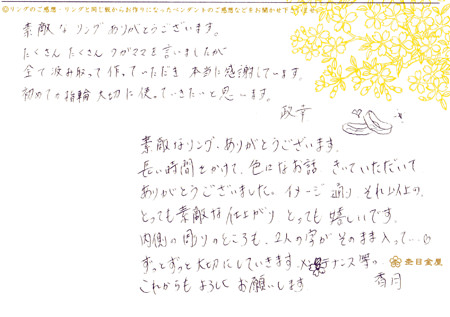 ◎リングのご感想・リングと同じ板からお作りになったペンダントのご感想などをお聞かせ下さいませ。
素敵なリングありがとうございます。
たくさんたくさんワガママを言いましたが
全て汲み取って作っていただき本当に感謝しています。
初めての指輪大切に使っていきたいと思います。
政幸
素敵なリング、ありがとうございます。
長い時間をかけて、色々なお話きいていただいて
ありがとうございました。イメージ通りそれ以上の、
とっても素敵な仕上がりとっても嬉しいです。
内側の彫りのところも、2人の字がそのまま入って…♡
ずっとずっと大切にしていきます。メンテナンス等の、
これからもよろしくお願いします
香月
杢目金屋